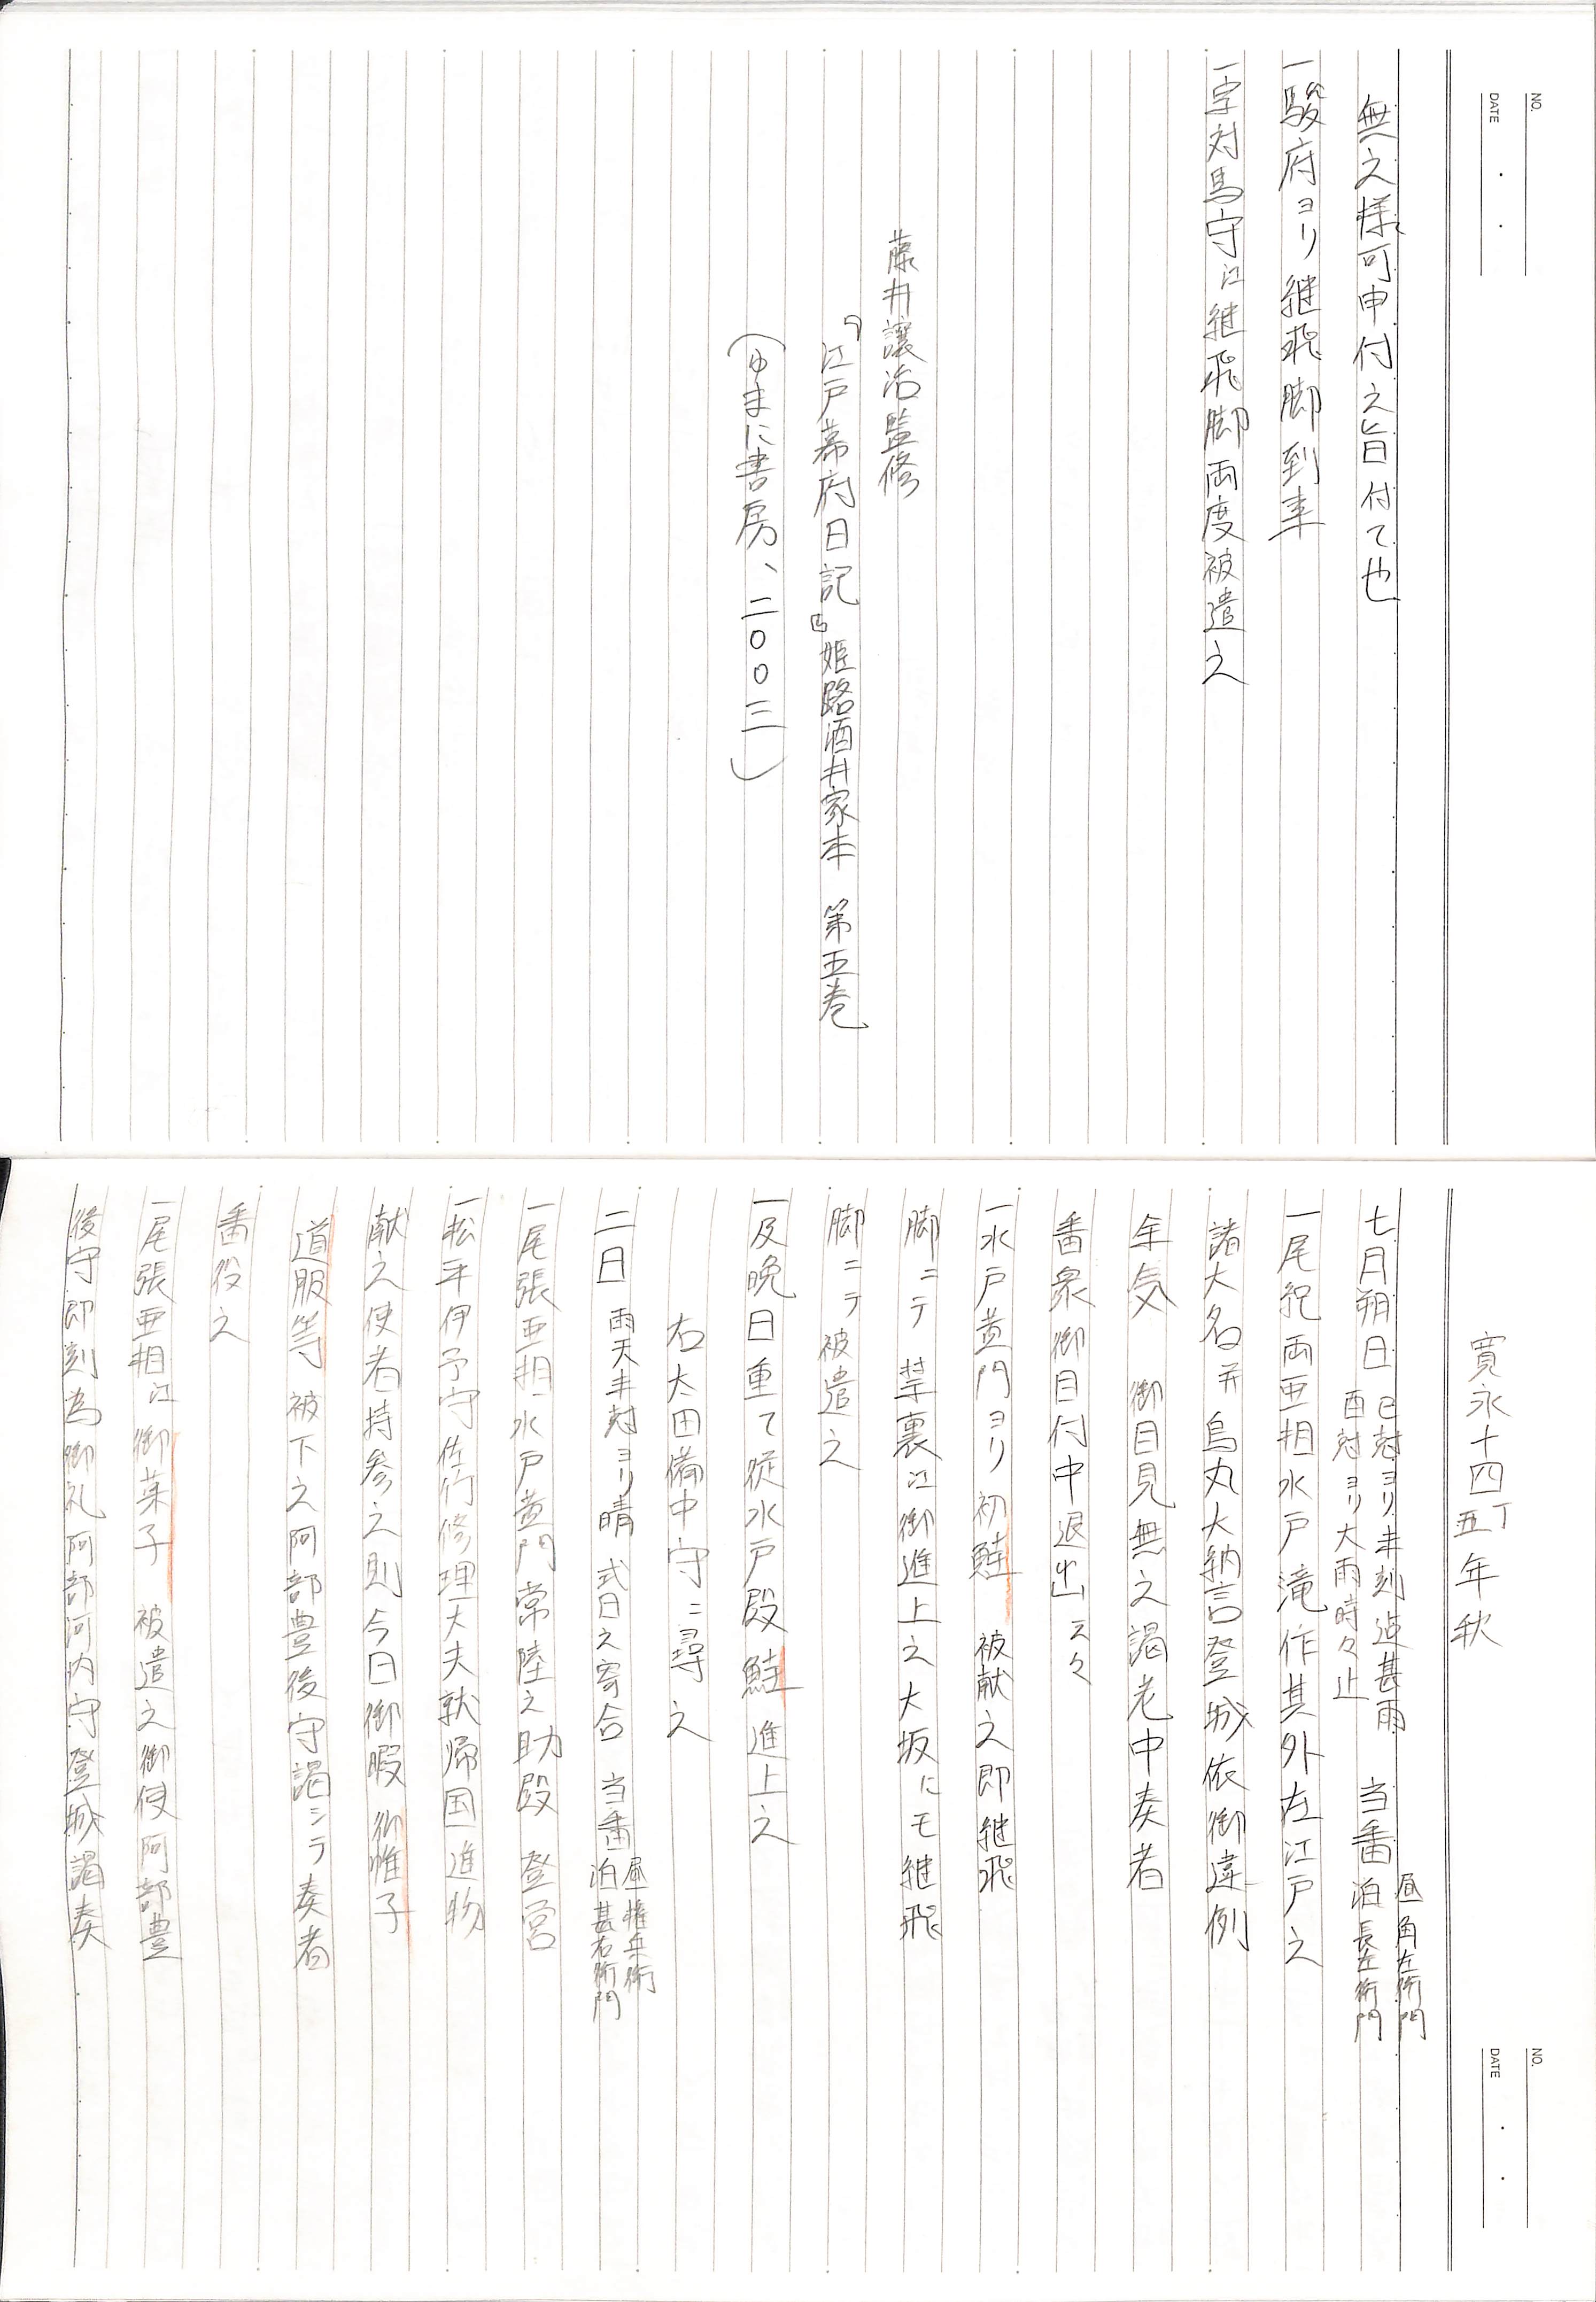 NO.
DATE
無之様可申付之旨付て也
一駿府ヨリ継飛脚到来
一宗対馬守江継飛脚両度被遣之
藤井讓治監修
『江戸幕府日記』姫路酒井家本 第五巻
(ゆまに書房、二〇〇三)
NO.
DATE
寛永十四丁丑年秋
七月朔日 巳刻ヨリ未刻迄甚雨 酉刻ヨリ大雨時々止 当番 昼角左衛門 泊長左衛門
一尾紀両亜相水戸滝作其外在江戸之
諸大名并烏丸大納言登城依御違例
余気 御目見無之謁老中奏者
番衆御目付中退出云々
一水戸黄門ヨリ初鮭 被献之即継飛
脚ニテ 禁裏江御進上之大坂にモ継飛
脚ニテ被遣之
一及晩日重て従水戸殿鮭進上之
右太田備中守ニ尋之
二日 雨天未刻ヨリ晴 式日之寄合 当番 昼権兵衛 泊甚右衛門
一尾張亜相水戸黄門常陸之助殿 登営
一松平伊予守佐竹修理大夫就帰国進物
献之使者持参之則今日御暇 御帷子
道服等 被下之阿部豊後守謁シテ奏者
番役之
一尾張亜相江御菓子 被遣之御使阿部豊
後守即刻為御礼阿部河内守登城謁奏